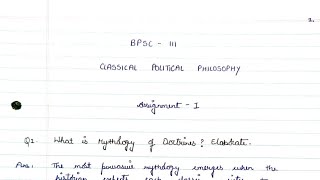 1.
BPSC - III
CLASSICAL POLITICAL PHILOSOPHY
Assignment - I
Q1. What is Mythology of Doctrines? Elaborate.
Ans: The most pervasive mythology emerges when the
historian expects each classic